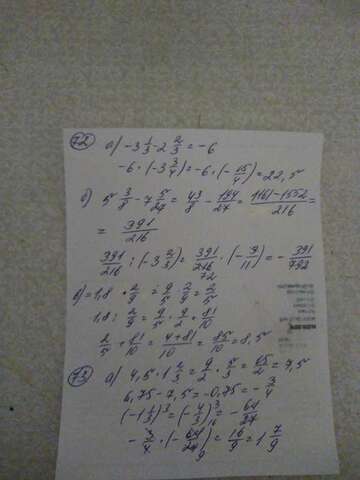 72 а) -3 1/3 - 2 2/3 = -6
-6 · (-3 3/4) = -6 · (-15/4) = 22,5
б) 5 3/8 - 7 5/27 = 43/8 - 194/27 = 1161-1552/216 =
= 391/216
391/216 : (-3 2/3) = 391/216 72 · (-3/11) = - 391/792
в) = 1,8 · 2/9 = 9/5 · 2/9 = 2/5
1,8 : 2/9 = 9/5 · 9/2 = 81/10
2/5 + 81/10 = 4+81/10 = 85/10 = 8,5
73 а) 4,5 · 1 2/3 = 9/2 · 5/3 = 15/2 = 7,5
6,75 - 7,5 = -0,75 = - 3/4
(-1 1/3)³ = (-4/3)³ = - 64/27
- 3/4 · (- 64/27) = 16/9 = 1 7/9